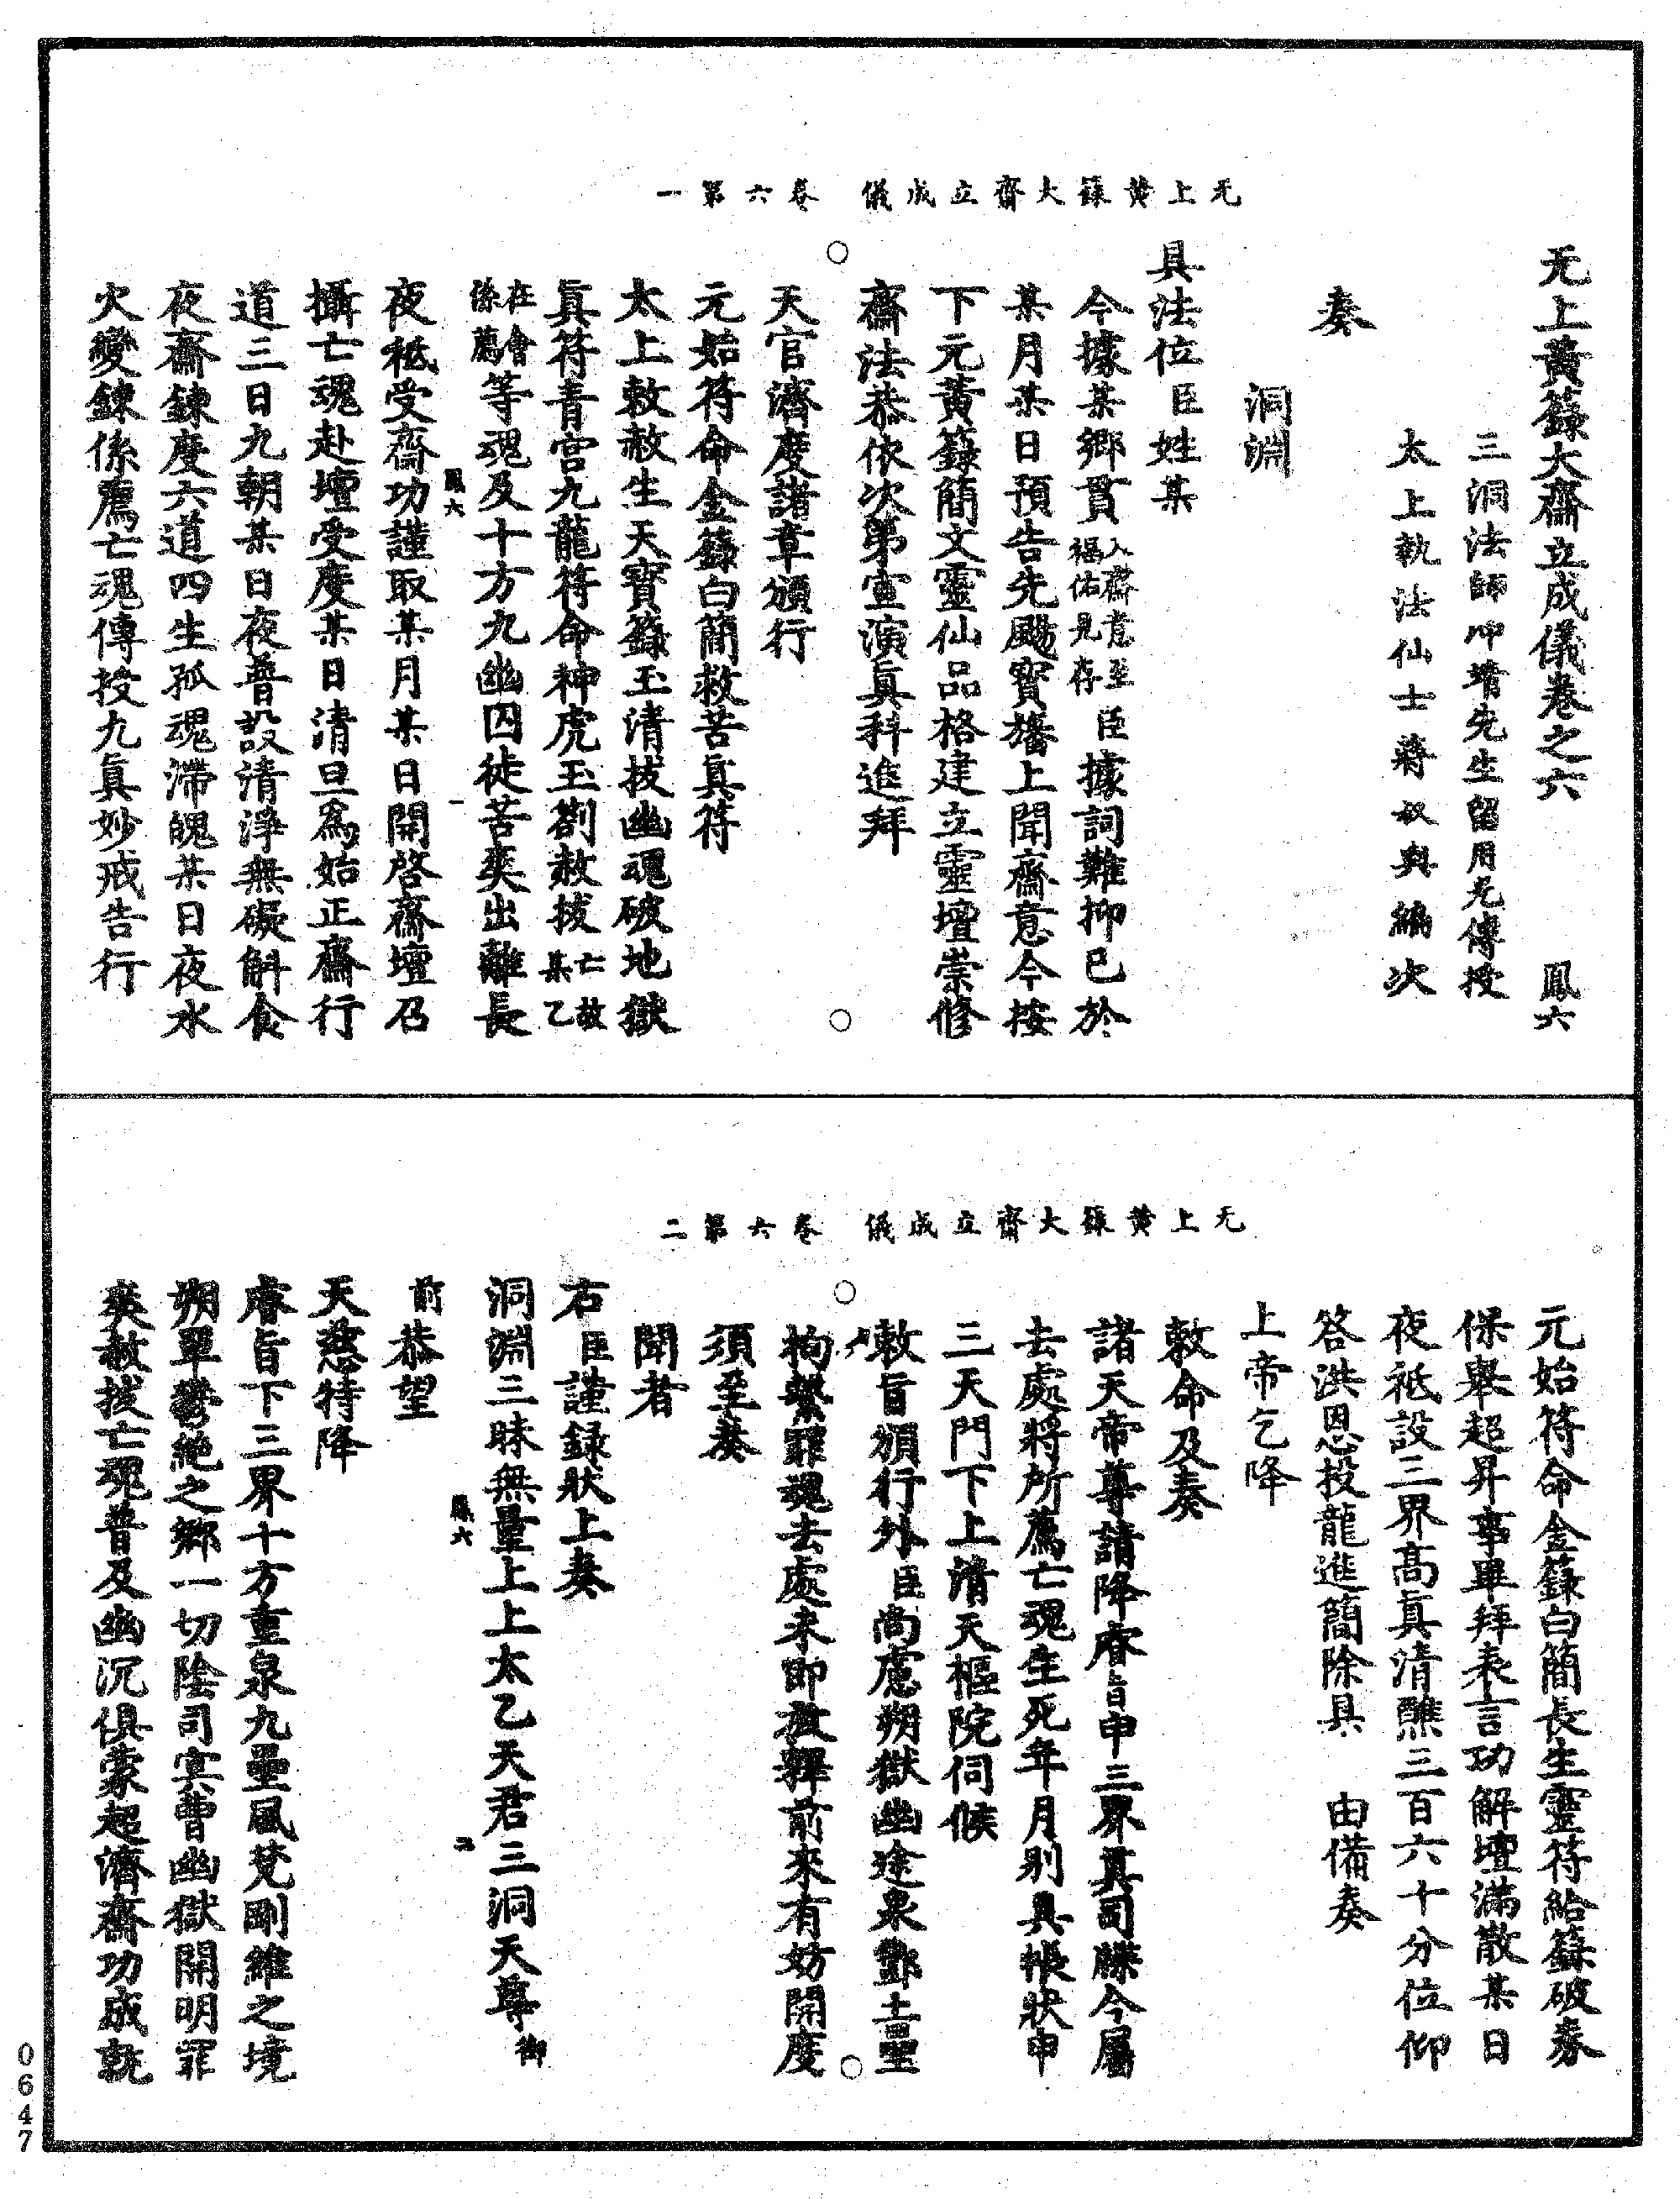 无上黃籙大齋立成儀 卷六第一
无上黃籙大齋立成儀卷之六 鳳六
三洞法師冲靖先生留用光傳授
太上執法仙士蔣叔輿編次
奏
洞淵
具法位臣姓某
今據某鄉貫入齋意至福佑見存臣據詞難抑已於
某月某日預告先颺寳旛上聞齋意今按
下元黃籙簡文靈仙品格建立靈壇崇修
齋法恭依次第宣演眞科進拜
天官濟度諸章頒行
元始符命金籙白簡救苦眞符
太上敕赦生天寳籙玉清拔幽魂破地獄
眞符青宫九龍符命神虎玉劄赦拔亡故某乙
在會係薦等魂及十方九幽囚徒苦爽出離長
鳳六 一
夜祗受齋功謹取某月某日開啓齋壇召
攝亡魂赴壇受度某日清旦爲始正齋行
道三日九朝某日夜普設清淨無礙斛食
夜齋鍊度六道四生孤魂滯魄某日夜水
火變鍊係薦亡魂傳授九眞妙戒告行
无上黃籙大齋立成儀 卷六第二
元始符命金籙白簡長生靈符給籙破券
保舉超昇事畢拜表言功解壇滿散某日
夜祗設三界髙眞清醮三百六十分位仰
答洪恩投龍進簡除具 由備奏
上帝乞降
敕命及奏
諸天帝尊請降睿旨申三界眞司牒今屬
去處將所薦亡魂生死年月别具帳狀申
三天門下上清天樞院伺候
敕旨頒行外臣尚慮朔獄幽途泉酆土壘
拘繫罪魂去處未即放釋前來有妨開度
須至奏
聞者
右臣謹録狀上奏
洞淵三昧無量上上太乙天君三洞天尊御
鳳六 二
前恭望
天慈特降
睿旨下三界十方重泉九壘風梵剛維之境
朔單鬱絶之鄉一切陰司冥曹幽獄開明罪
爽赦拔亡魂普及幽沉俱蒙超濟齋功成就
0647